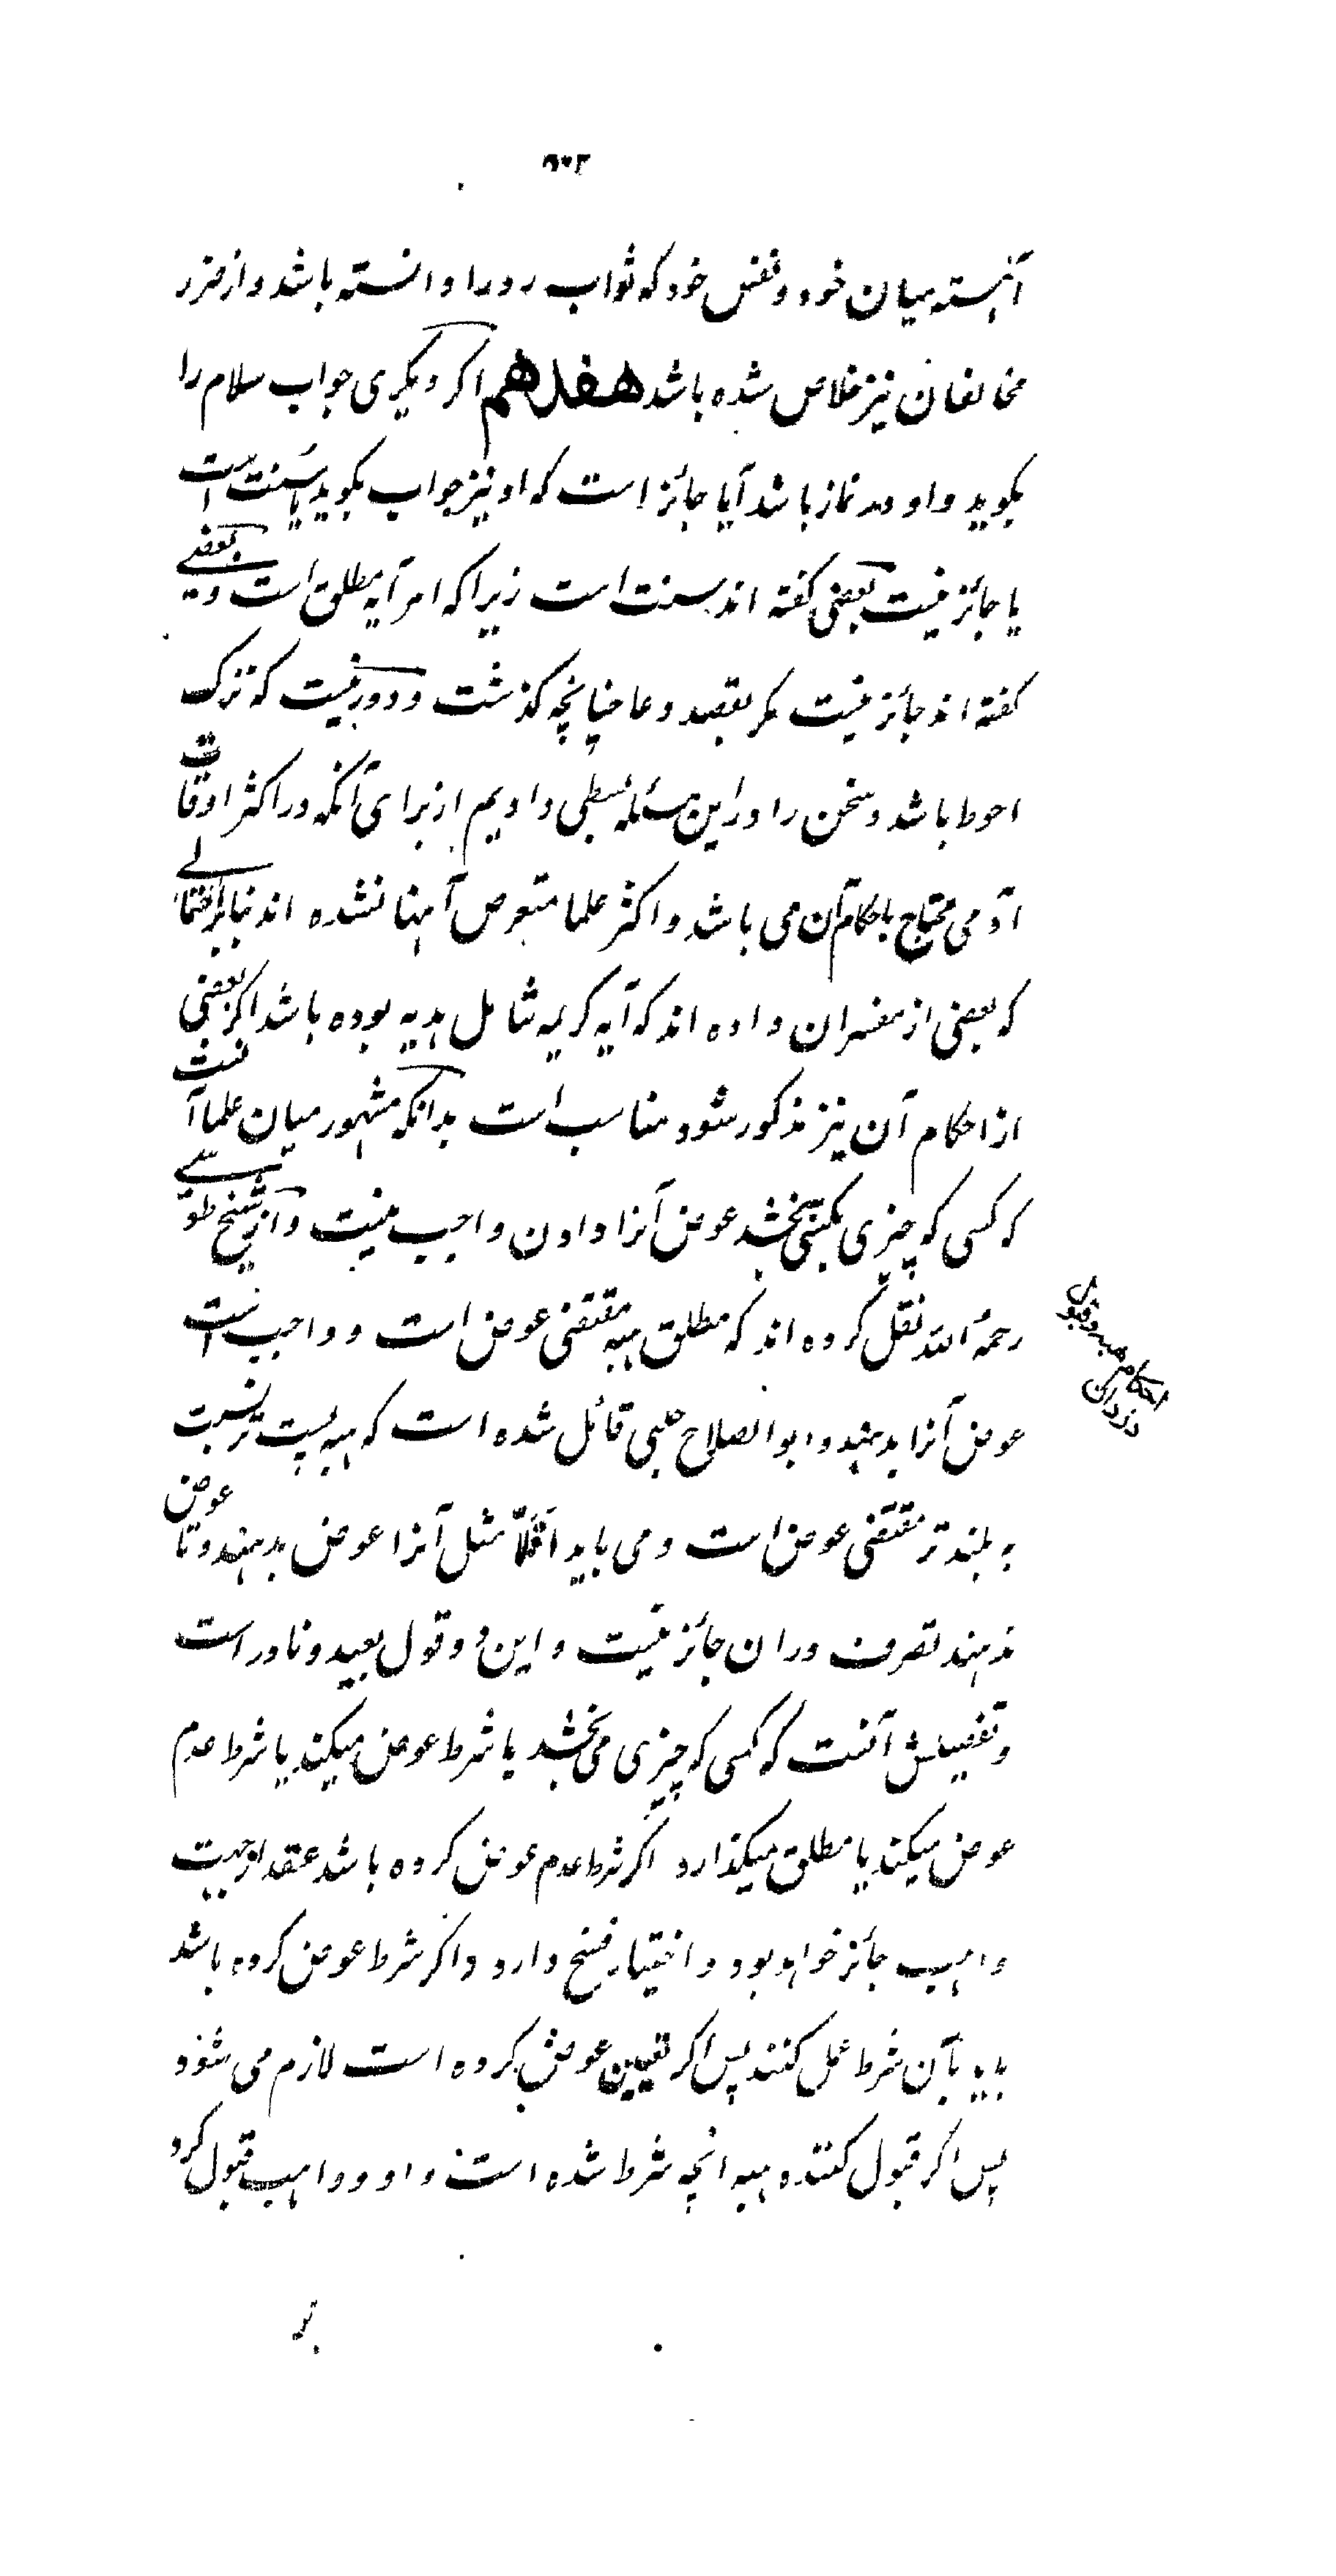 ۵۰۲
آهسته میان خود و نفس خود که ثواب رد را دانسته باشد و از ضرر
مخالفان نیز خلاص شده باشد هفدهم اکر دیکری جواب سلام را
بکوید و او در نماز باشد آیا جائز است که او نیز جواب بکوید یا سنت است
یا جائز نیست بعضی کفته اند سنت است زیرا که امر آیه مطلق است و بعضے
کفته اند جائز نیست مکر بقصد دعا چنانچه کذشت و دور نیست که ترک
احوط باشد و سخن را در این مسئله بسطی دادیم از برای آنکه در اکثر اوقات
آدمی محتاج باحکام آن می باشد و اکثر علما متعرض آنها نشده اند بنابر احتمالے
که بعضی از مفسران داده اند که آیه کریمه شامل هدیه بوده باشد اکر بعضی
از احکام آن نیز مذکور شود مناسب است بدانکه مشهور میان علما آنست
که کسی که چیزی بکسی بخشد عوض آنرا دادن واجب نیست و از شیخ طوسے
رحمه الله نقل کرده اند که مطلق هبه مقتضی عوض است و واجب است
عوض آنرا بدهند و ابو الصلاح حلبی قائل شده است که هبه پست تر نسبت
به بلند تر مقتضی عوض است و می باید اقلاً مثل آنرا عوض بدهند و تا عوض
ندهند تصرف در ان جائز نیست و این دو قول بعید و نادر است
و تفصیلش آنست که کسی که چیزی می بخشد یا شرط عوض میکند یا شرط عدم
عوض میکند یا مطلق میکذارد اکر شرط عدم عوض کرده باشد عقد از جهت
واهب جائز خواهد بود و اختیار فسخ دارد و اکر شرط عوض کرده باشد
باید بآن شرط عمل کنند پس اکر تعیین عوض کرده است لازم می شود
پس اکر قبول کننده هبه انچه شرط شده است داد و واهب قبول کرد
احکام هبه و عوض